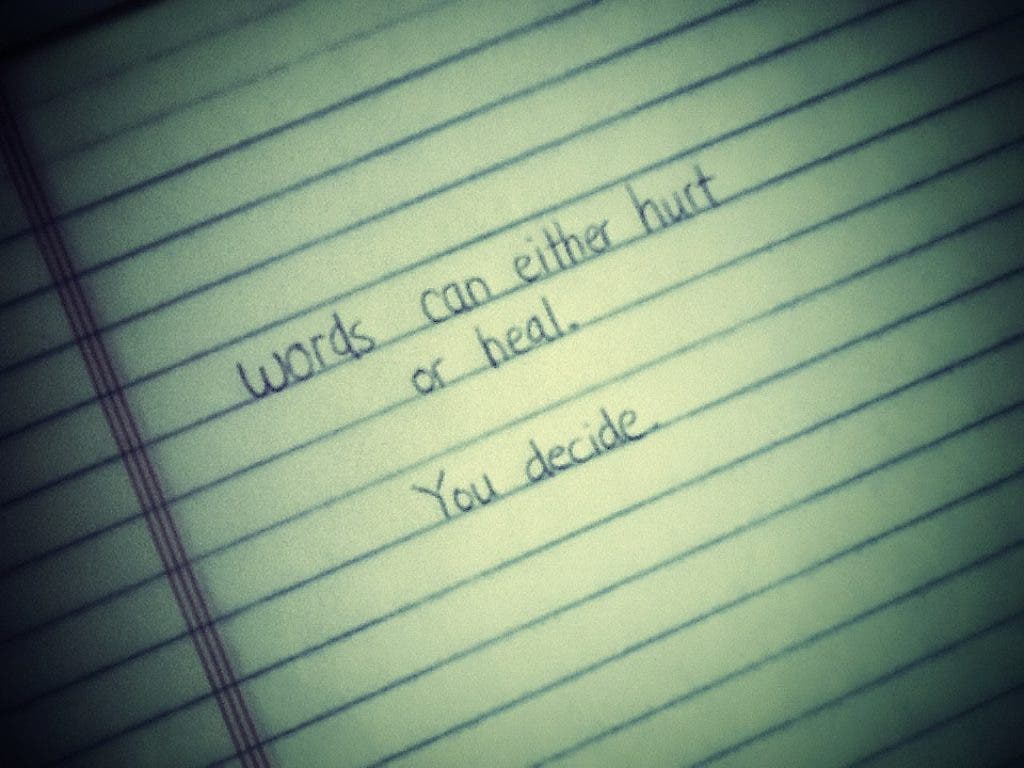 words can either hurt
or heal.
You decide.